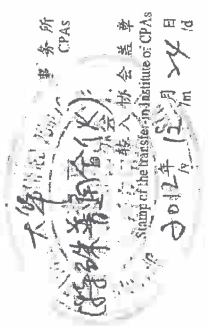 事务所
CPAs
大华
(特殊普通合伙)
转入协会盖章
Stamp of the transfer-in Institute of CPAs
2012年 12月 24日
/y /m /d